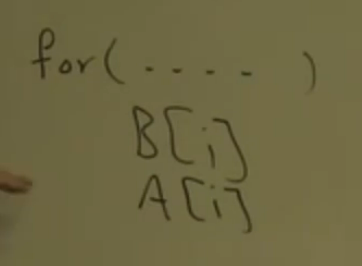 for( .... )
B[i]
A[i]